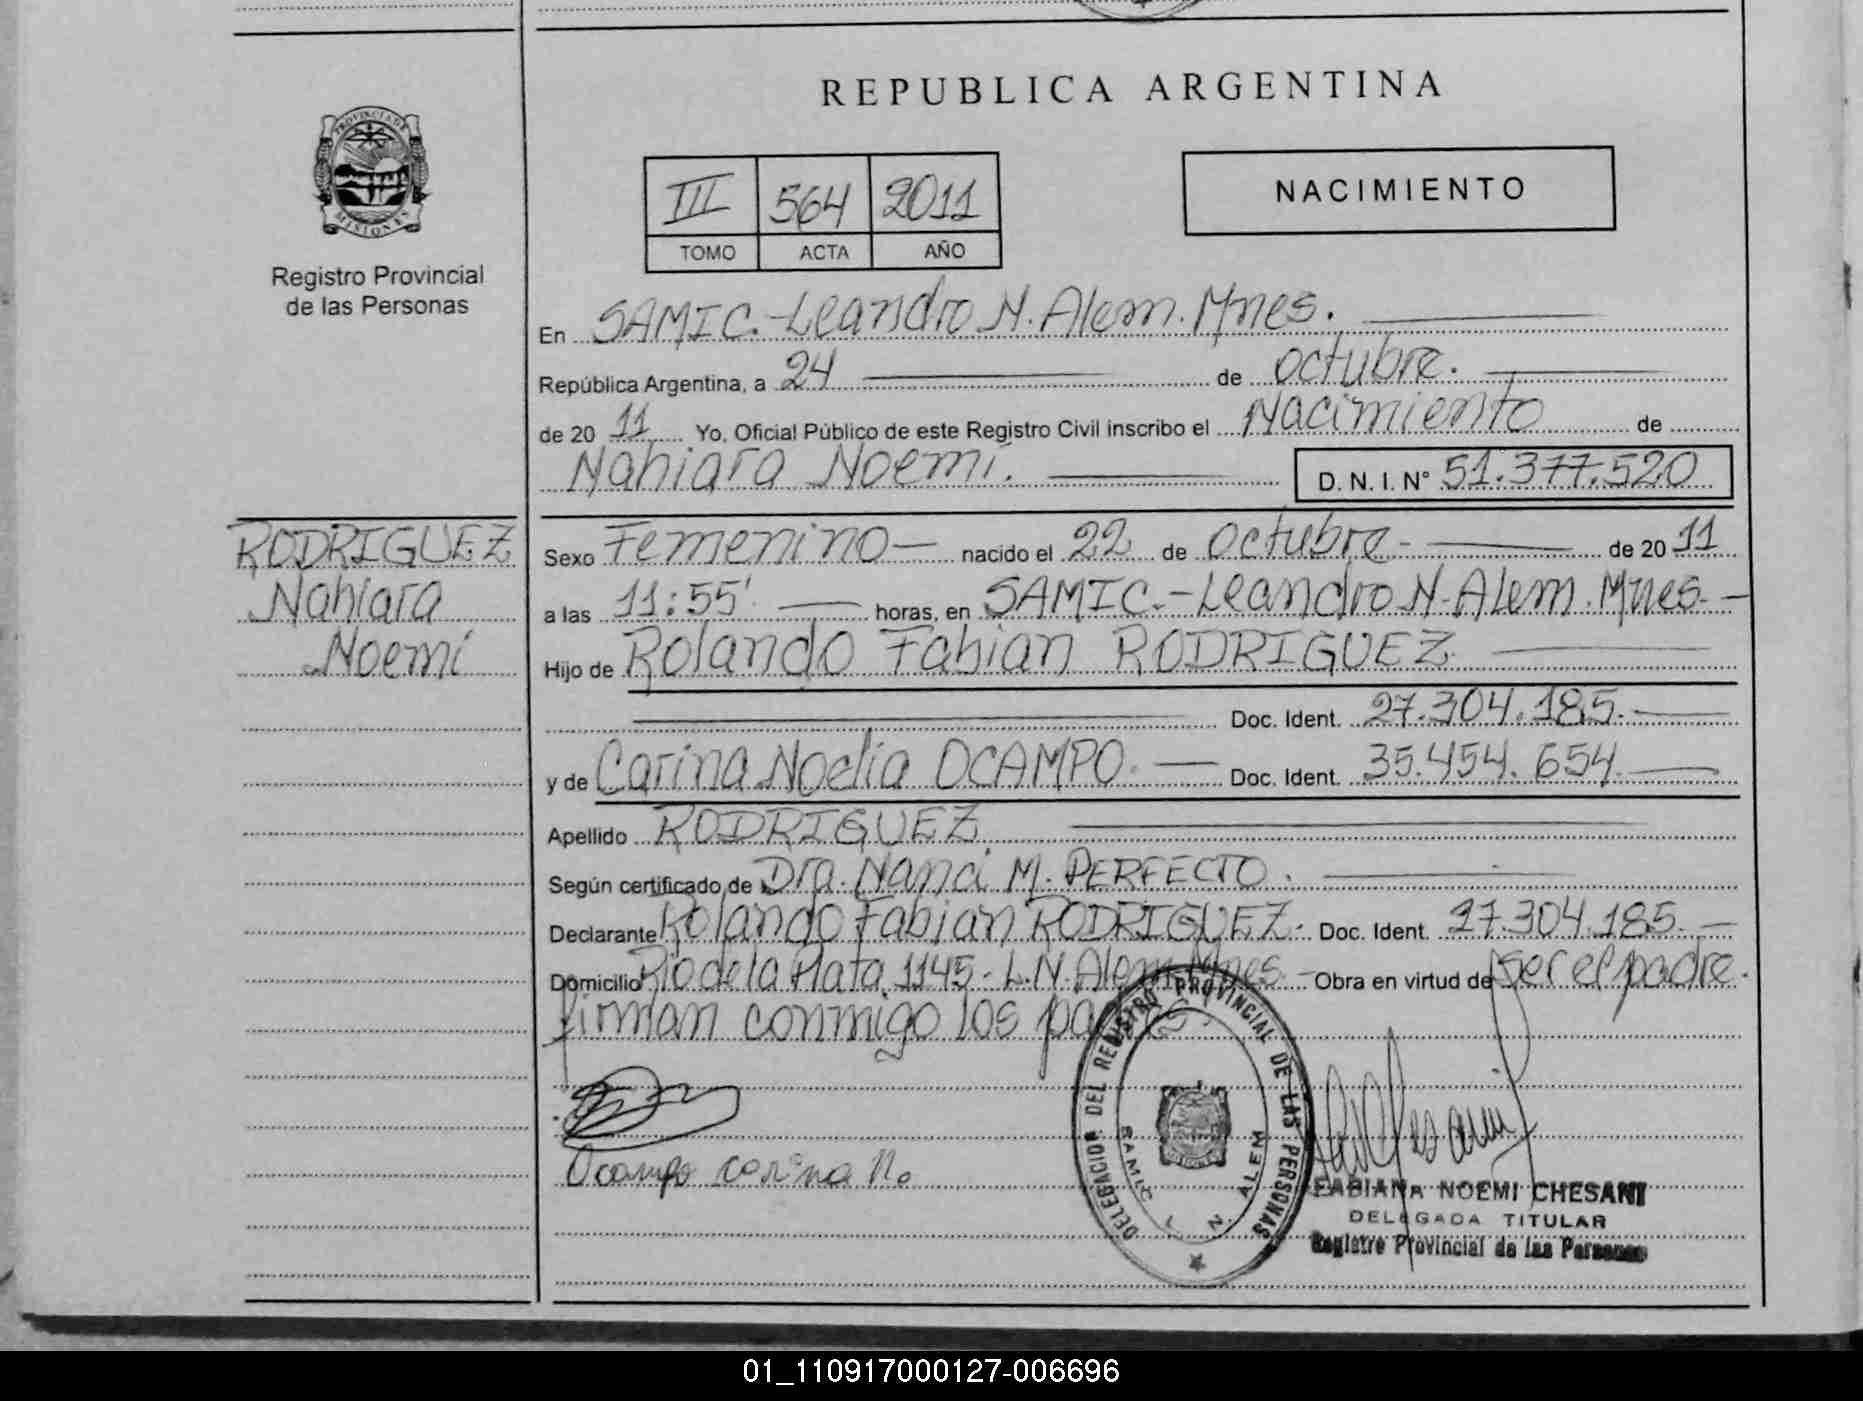 REPUBLICA ARGENTINA
PROVINCIA DE MISIONES
Registro Provincial
de las Personas
III 564 2011
TOMO ACTA AÑO
NACIMIENTO
En SAMIC.-Leandro N. Alem. Mnes.
República Argentina, a 24 de octubre.
de 20 11 Yo, Oficial Público de este Registro Civil inscribo el Nacimiento de
Nahiara Noemí. D. N. I. N° 51.377.520
RODRIGUEZ
Nahiara
Noemí
Sexo Femenino nacido el 22 de Octubre de 20 11
a las 11:55' horas, en SAMIC.-Leandro N. Alem. Mnes.
Hijo de Rolando Fabian RODRIGUEZ
Doc. Ident. 27.304.185.
y de Carina Noelia OCAMPO. Doc. Ident. 35.454.654
Apellido RODRIGUEZ.
Según certificado de Dra. Nanci M. PERFECTO.
Declarante Rolando Fabian RODRIGUEZ. Doc. Ident. 27.304.185.
Domicilio Rio de la Plata 1145 - L.N. Alem Mnes. Obra en virtud de ser el padre.
firman conmigo los
Ocampo carina N.
DELEGACION DEL REGISTRO PROVINCIAL DE LAS PERSONAS
SAMIC L. N. ALEM
FABIANA NOEMI CHESANI
DELEGADA TITULAR
Registro Provincial de las Personas
01_110917000127-006696